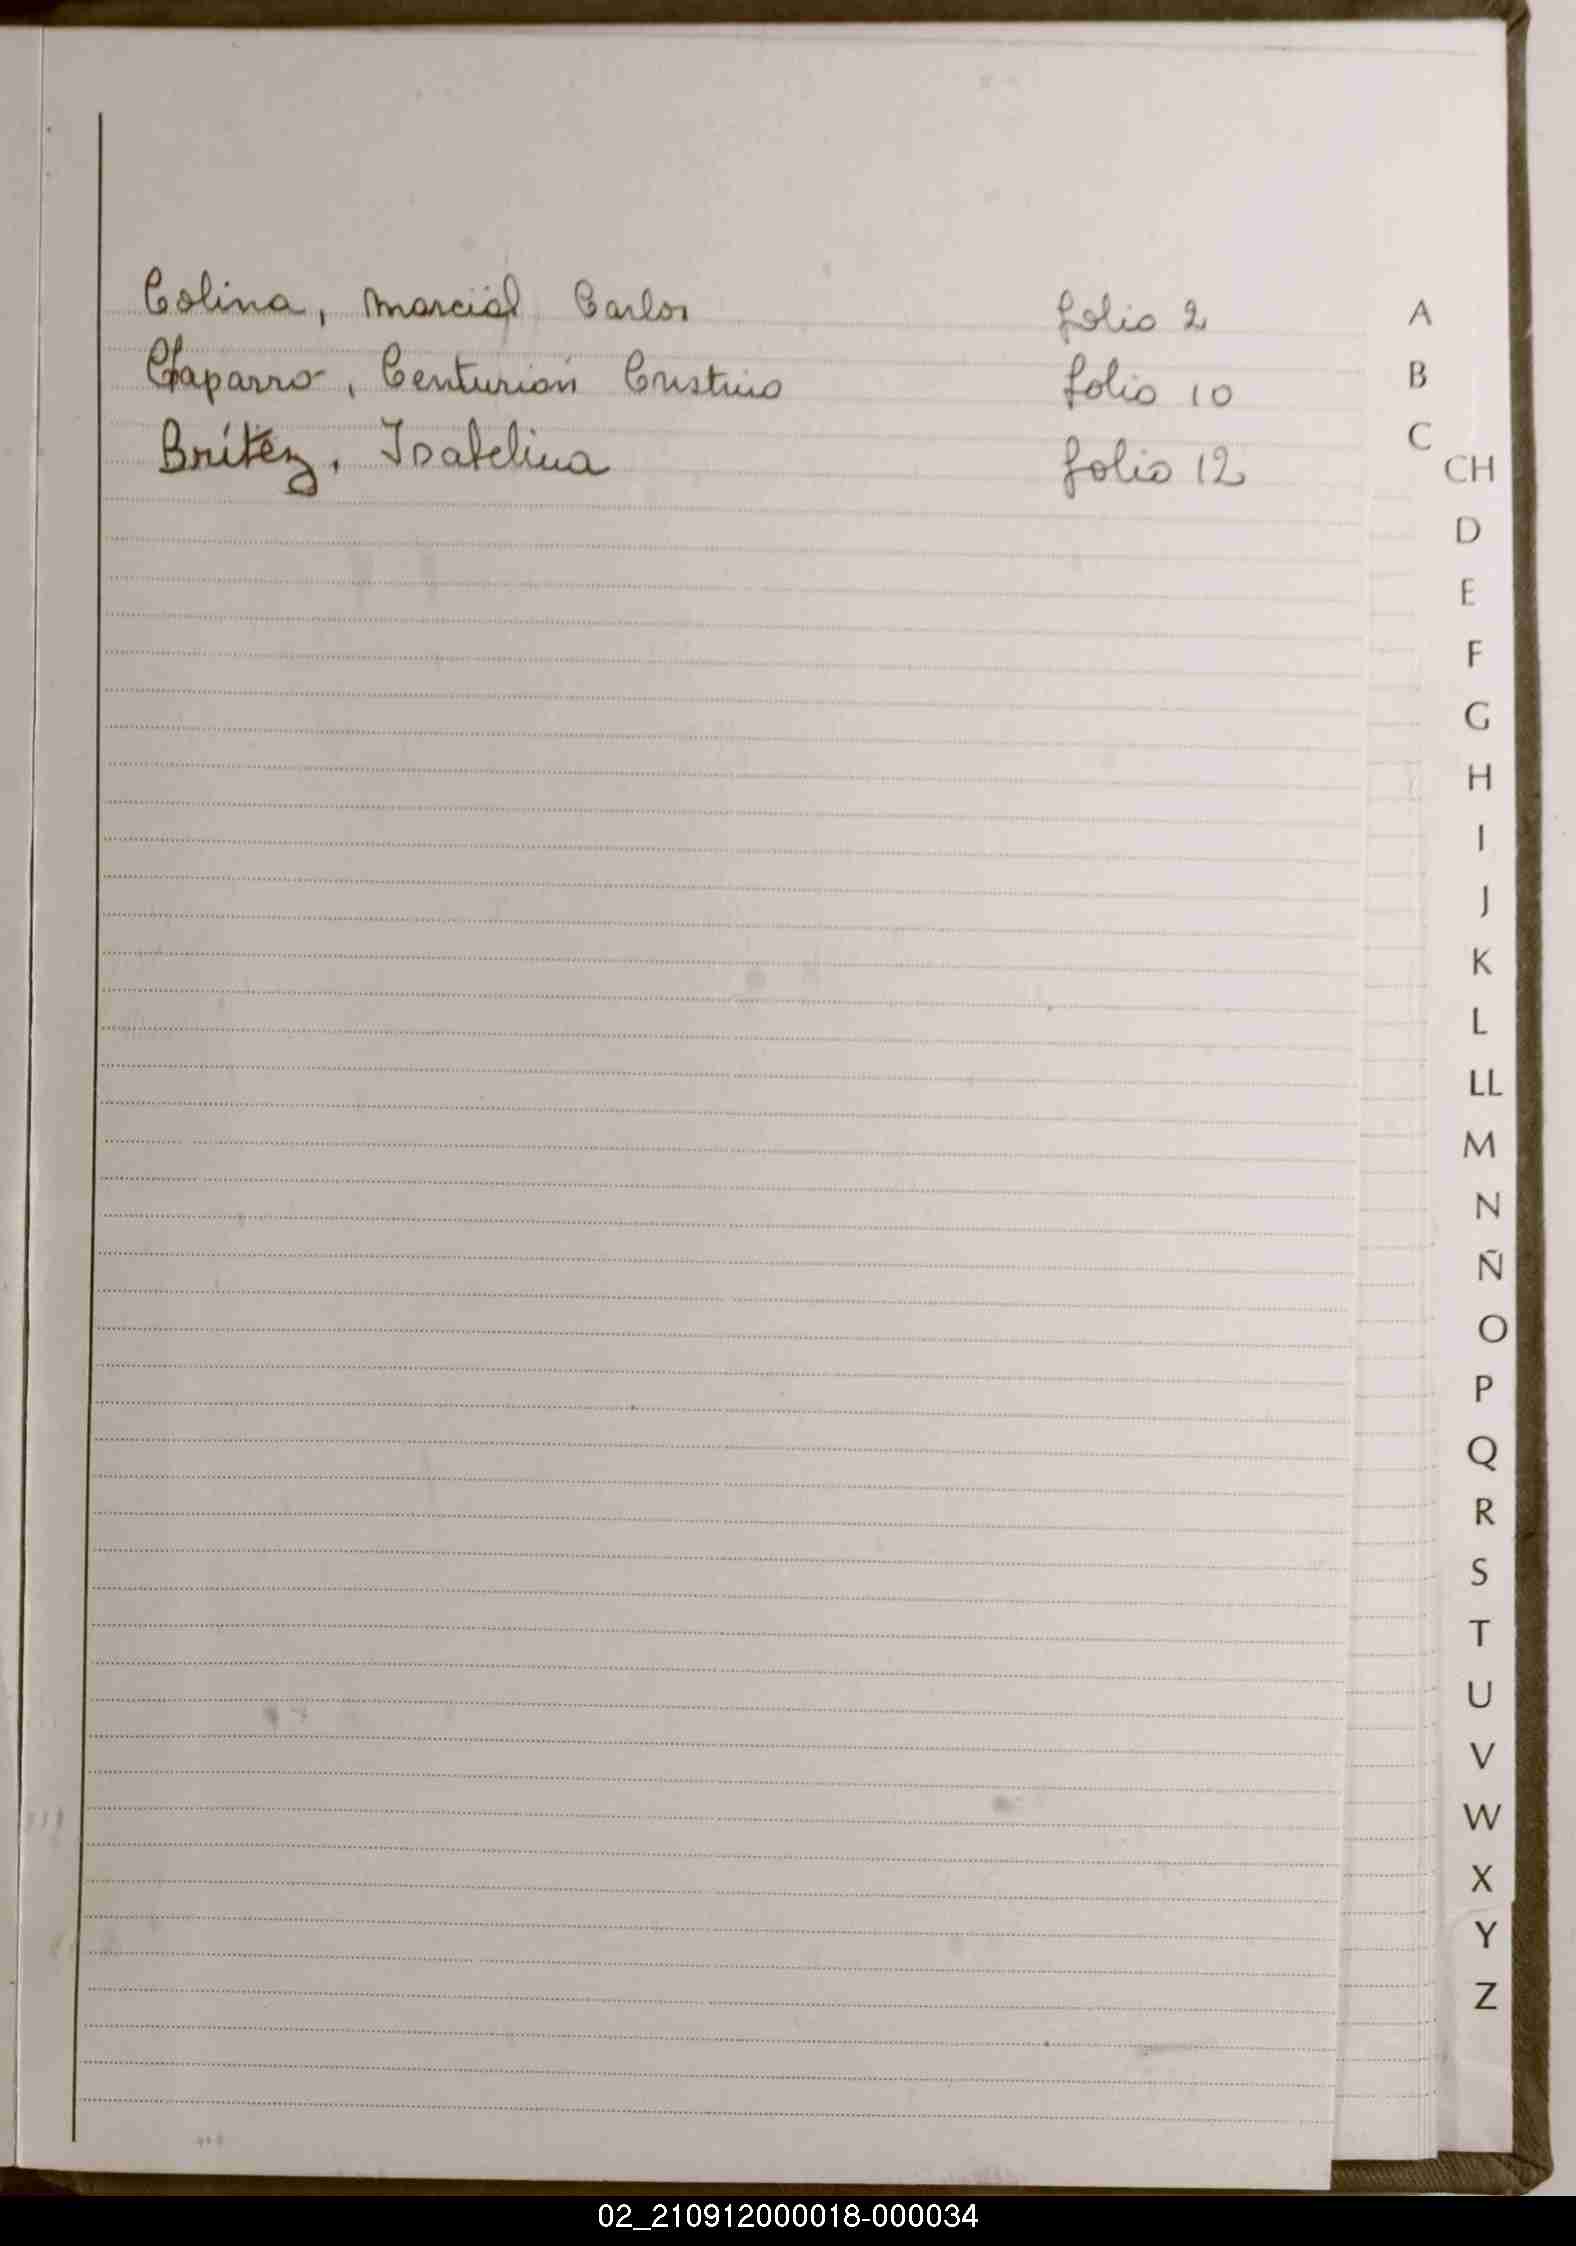 Colina, Marcial Carlos folio 2
Chaparro, Centurión Cristino folio 10
Brítez, Isabelina folio 12
A
B
C
CH
D
E
F
G
H
I
J
K
L
LL
M
N
Ñ
O
P
Q
R
S
T
U
V
W
X
Y
Z
02_210912000018-000034